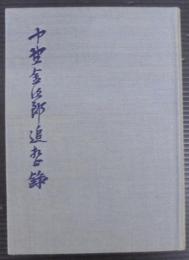 中野金次郎追想録